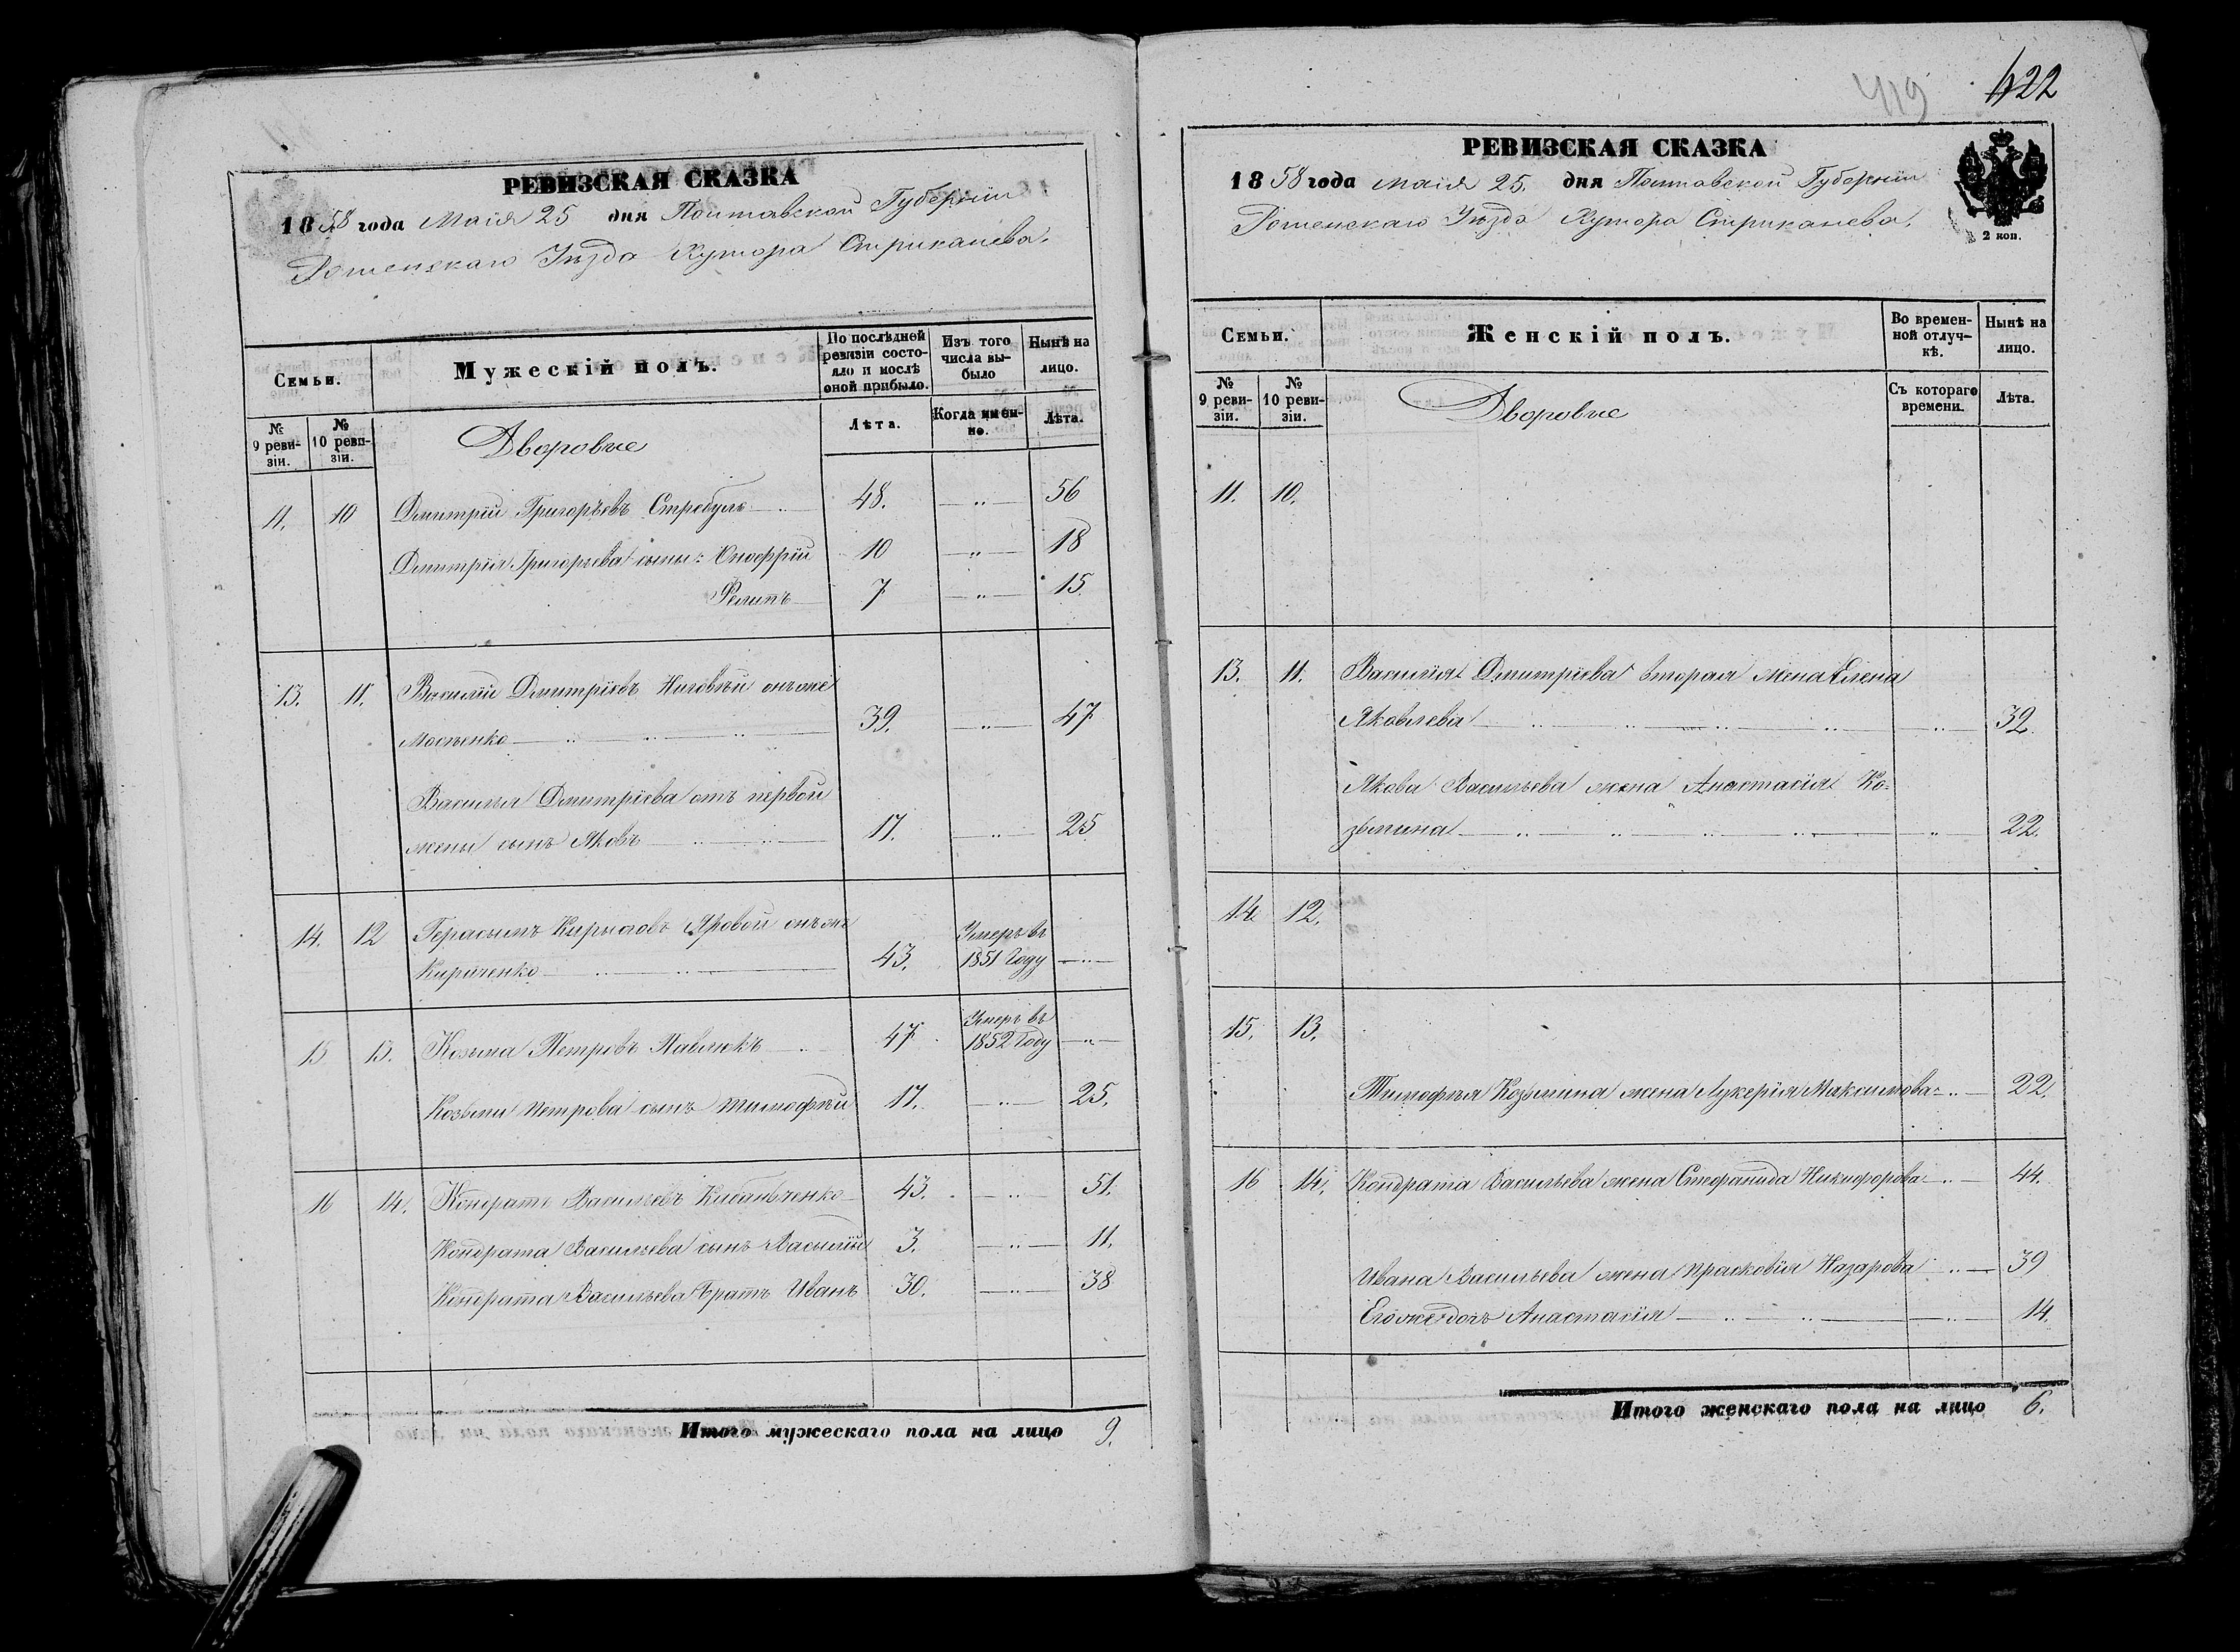 РЕВИЗСКАЯ СКАЗКА
1858 года Маія 25 дня Полтавской Губерніи
Роменскаго Уѣзда Хутора Стрикачева.
Семьи.
Мужескій полъ.
По послѣдней ревизіи состояло и послѣ оной прибыло.
Изъ того числа выбыло
Нынѣ на лицо.
№ 9 ревизіи.
№ 10 ревизіи.
Дворовые
Лѣта.
Когда именно.
Лѣта.
11. 10 Дмитрій Григорьевъ Стребуль 48. 56
Дмитрія Григорьева сыны: Онофрій 10 18
Филипъ 7 15.
13. 11. Василій Дмитріевъ Низовый онъ же
Мосьенко 39. 47
Василья Дмитріева отъ первой
жены сынъ Яковъ 17. 25
14. 12 Герасымъ Кирыловъ Яровой онъ же
Кириченко 43. Умеръ въ 1851 Году
15 13. Козьма Петровъ Павлюкъ 47 Умеръ въ 1852 Году
Козьмы Петрова сынъ Тимофѣй 17. 25.
16 14. Кондратъ Васильевъ 43. 51.
Кондрата Васильева сынъ Василій 3. 11.
Кондрата Васильева братъ Иванъ 30. 38
Итого мужескаго пола на лицо 9.
419 422
РЕВИЗСКАЯ СКАЗКА
1858 года маія 25. дня Полтавской Губерніи
Роменскаго Уѣзда Хутора Стрикачева.
2 коп.
Семьи.
Женскій полъ.
Во временной отлучкѣ.
Нынѣ на лицо.
№ 9 ревизіи.
№ 10 ревизіи.
Дворовые
Съ котораго времени.
Лѣта.
11. 10.
13. 11. Василія Дмитріева вторая жена Елена
Яковлева 32.
Якова Васильева жена Анастасія Ко-
зьмина 22.
14. 12.
15. 13.
Тимофѣя Козьмина жена Лукерія Максимова 22.
16 14. Кондрата Васильева жена Стефанида Никифорова 44.
Ивана Васильева жена Прасковія Назарова 39
Его же дочь Анастасія 14.
Итого женскаго пола на лицо 6.